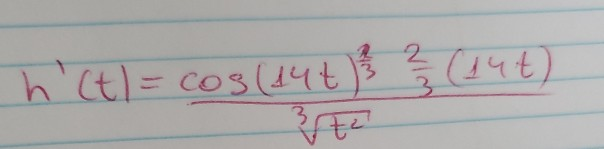 h'(t) = cos(14t)^{2/3} 2/3 (14t) / ∛t²